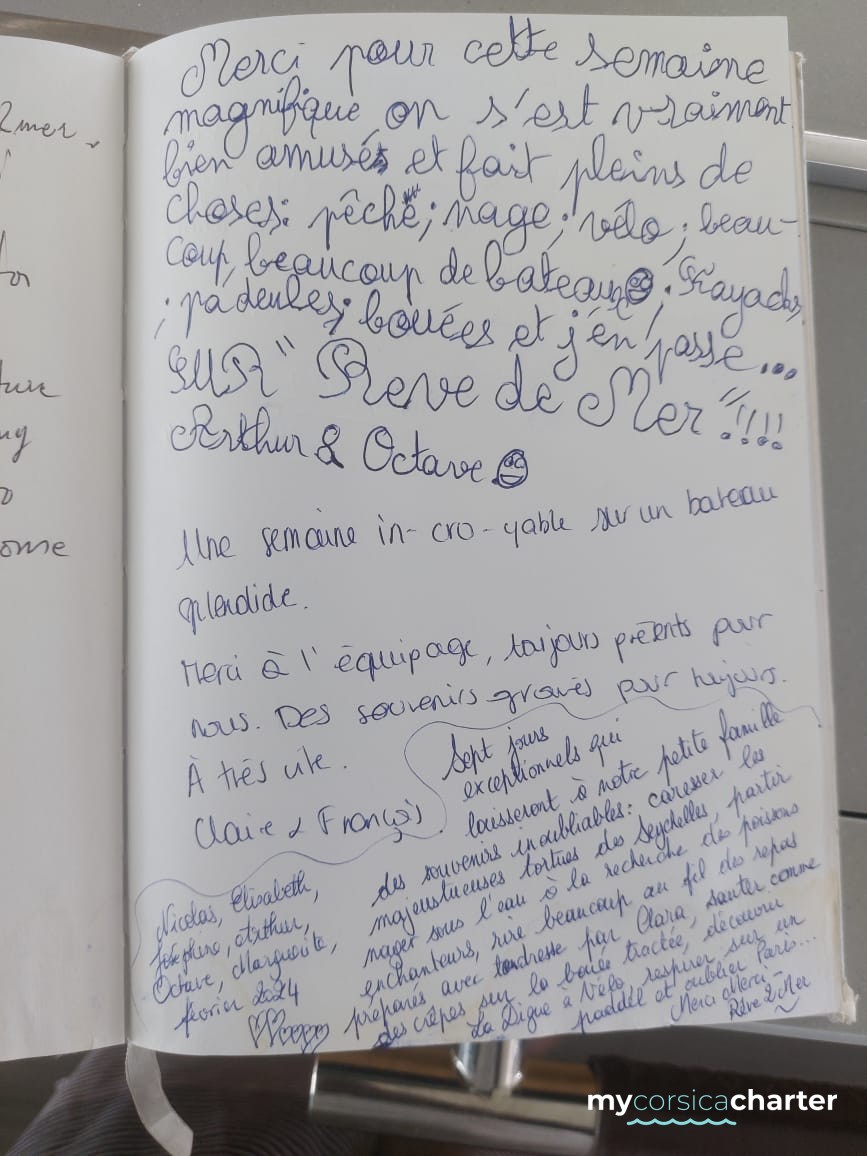 2mer.
for
ture
ng
ome
Merci pour cette semaine
magnifique, on s'est vraiment
bien amusés et fait pleins de
choses: pêche; nage; vélo; beau-
coup, beaucoup de bateaux; Kayacks
; padeules; bouées et j'en passe...
SUR "Reve de Mer"!!!!
Arthur & Octave
Une semaine in-cro-yable sur un bateau
splendide.
Merci à l'équipage, toujours présents pour
nous. Des souvenirs gravés pour toujours.
À très vite.
Claire & François
Sept jours
exceptionnels qui
laisseront à notre petite famille
des souvenirs inoubliables: caresser les
majestueuses tortues des Seychelles, partir
nager sous l'eau à la recherche des poissons
enchanteurs, rire beaucoup au fil des repas
préparés avec tendresse par Clara, sauter comme
des crêpes sur la bouée tractée, découvrir
La Digue à Vélo, respirer sur un
paddel et oublier Paris...
Merci Merci -
Rêve 2 Mer
Nicolas, Elisabeth,
Joséphine, Arthur,
Octave, Marguerite,
février 2024
mycorsicacharter